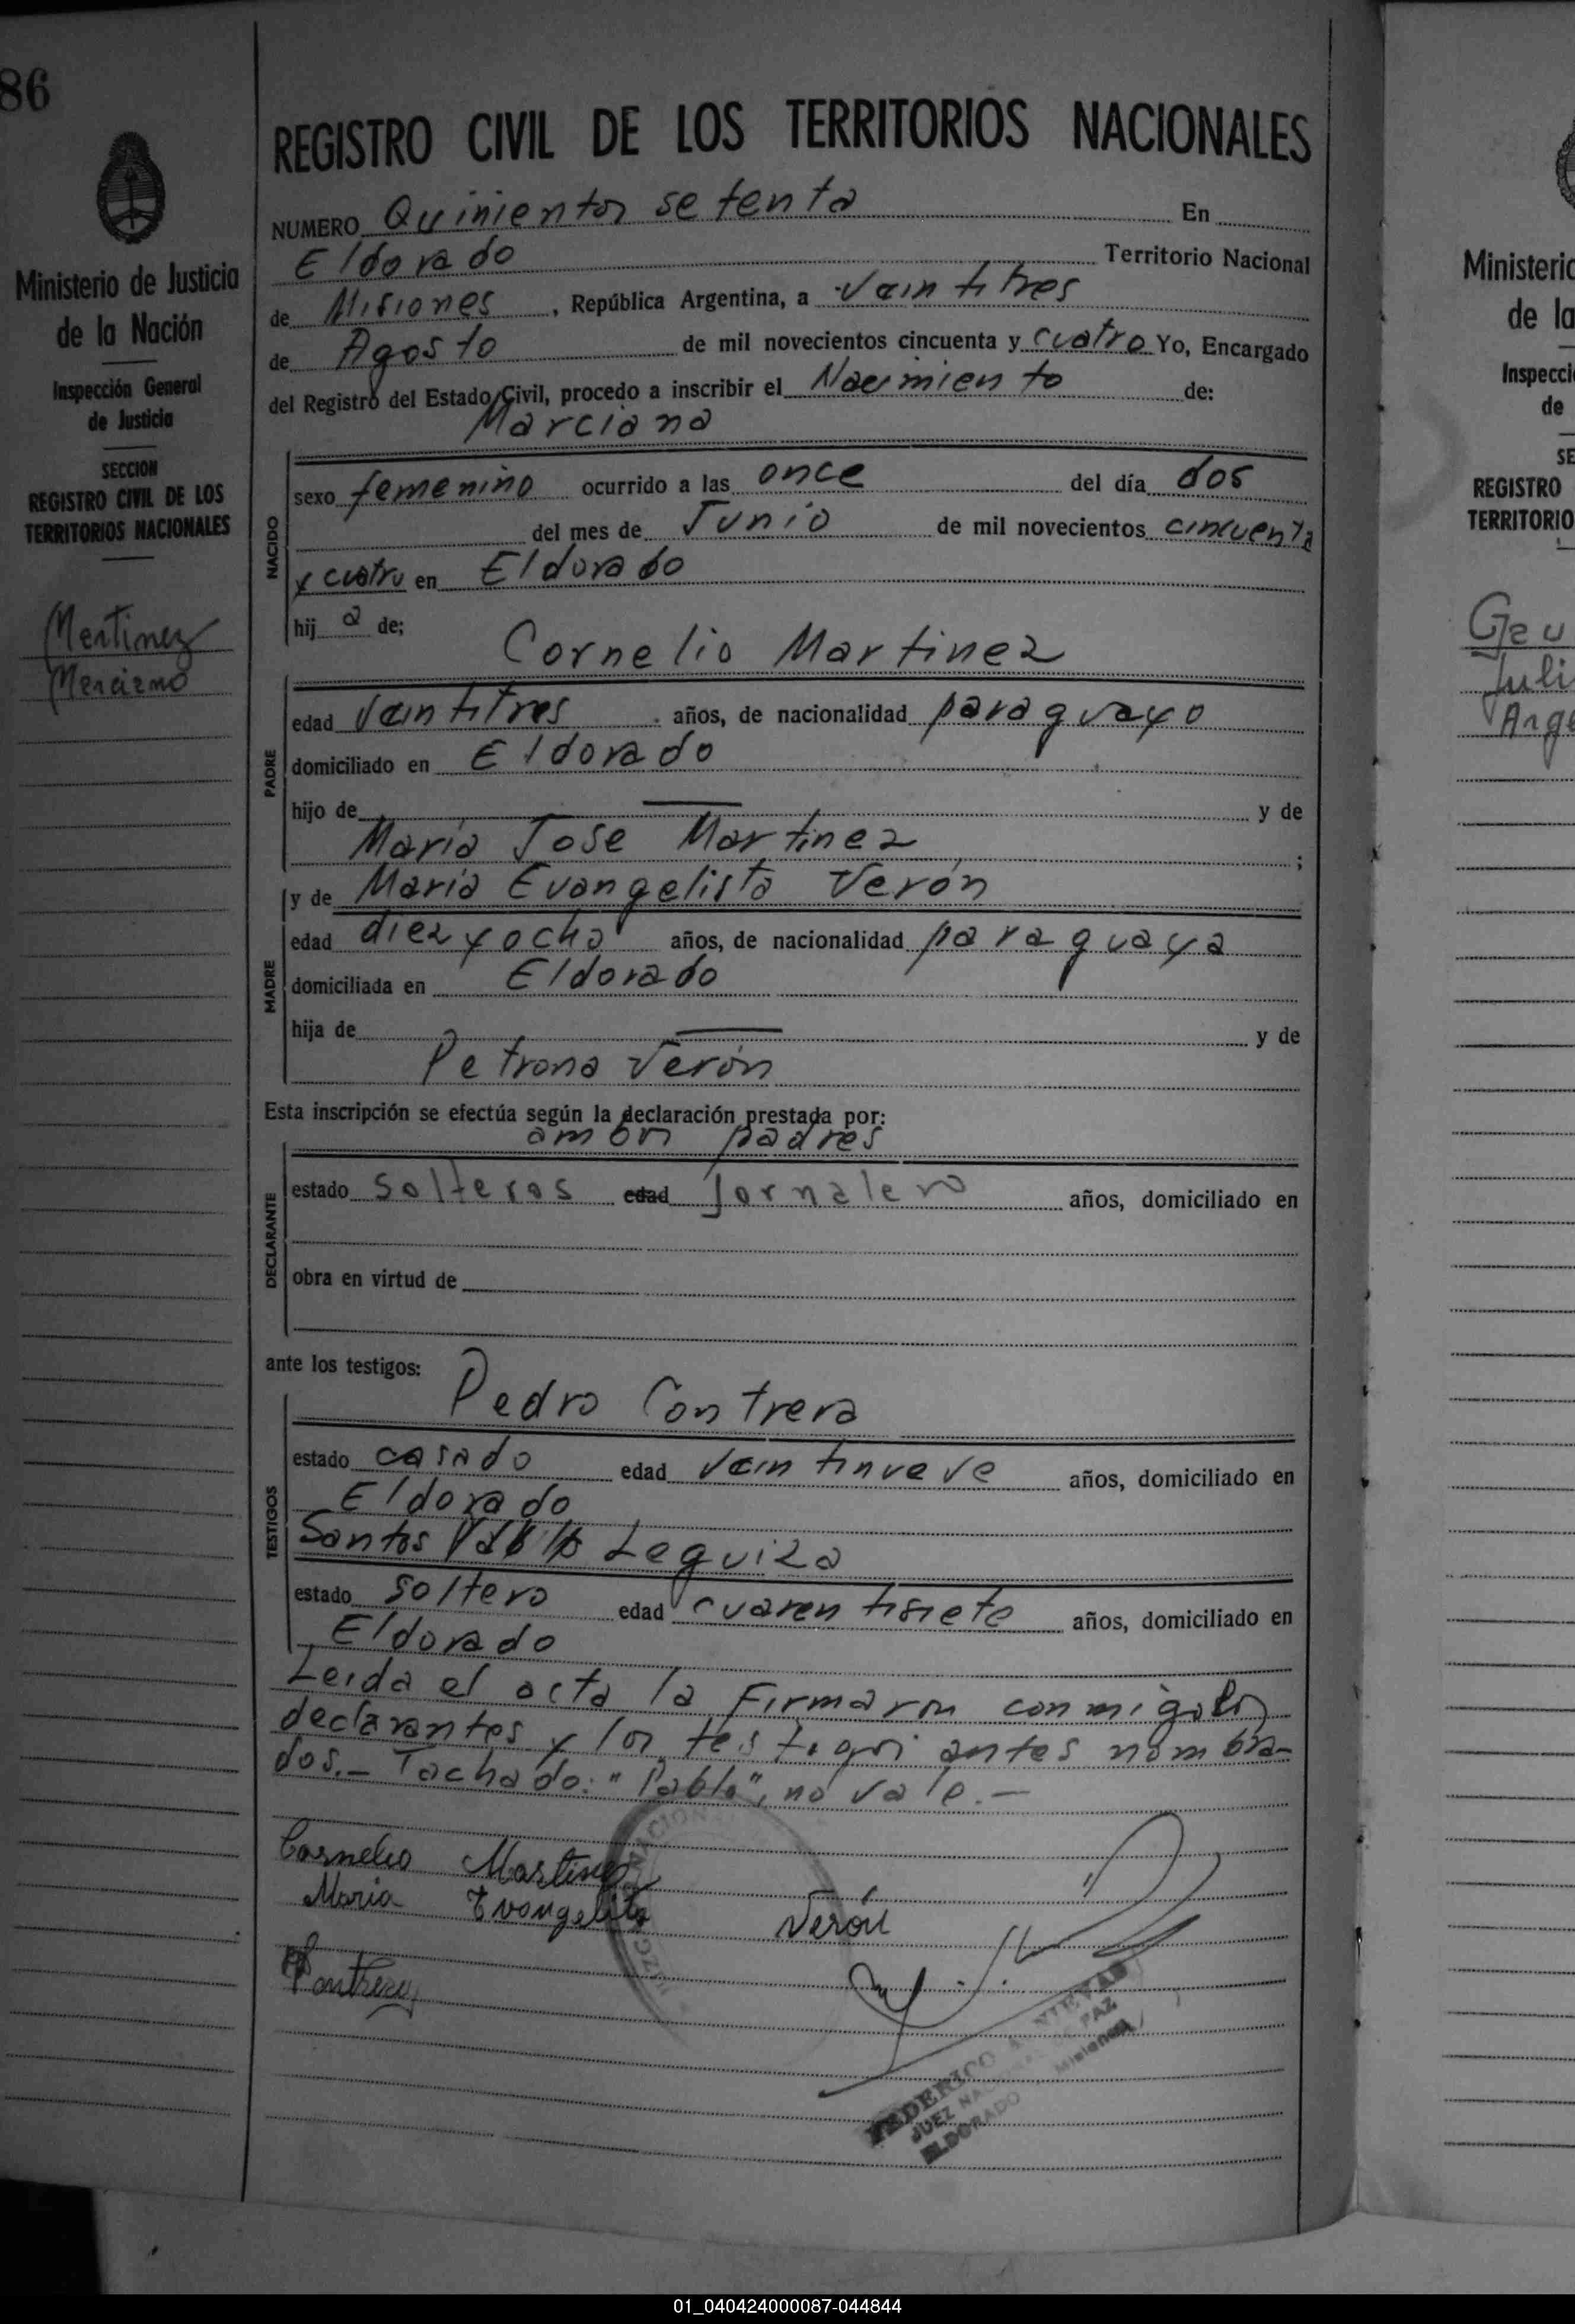 86
Ministerio de Justicia
de la Nación
Inspección General
de Justicia
SECCION
REGISTRO CIVIL DE LOS
TERRITORIOS NACIONALES
Martinez
REGISTRO CIVIL DE LOS TERRITORIOS NACIONALES
NUMERO Quinientos setenta En
Eldorado Territorio Nacional
de Misiones, República Argentina, a Veintitres
de Agosto de mil novecientos cincuenta y cuatro Yo, Encargado
del Registro del Estado Civil, procedo a inscribir el Nacimiento de:
Marciana
NACIDO
sexo femenino ocurrido a las once del día dos
del mes de Junio de mil novecientos cincuenta
y cuatro en Eldorado
hij a de;
Cornelio Martinez
PADRE
edad Veintitres años, de nacionalidad paraguayo
domiciliado en Eldorado
hijo de — y de
María Jose Martinez ;
y de María Evangelista Verón
MADRE
edad diez y ocho años, de nacionalidad paraguaya
domiciliada en Eldorado
hija de — y de
Petrona Verón
Esta inscripción se efectúa según la declaración prestada por:
ambos padres
DECLARANTE
estado solteros edad jornalero años, domiciliado en
obra en virtud de
ante los testigos:
Pedro Contrera
TESTIGOS
estado casado edad Veintinueve años, domiciliado en
Eldorado
Santos Pablo Leguiza
estado soltero edad cuarentisiete años, domiciliado en
Eldorado
Leida el acta la firmaron conmigo los
declarantes y los testigos antes nombra-
dos.- Tachado: "Pablo", no vale.-
Cornelio Martinez
Maria Evangelista Verón
Contrera
FEDERICO A. NIEVAS
JUEZ NACIONAL DE PAZ
ELDORADO Misiones
Ministerio
de la
Inspecci
de
SE
REGISTRO
TERRITORIO
Juli
Arge
01_040424000087-044844